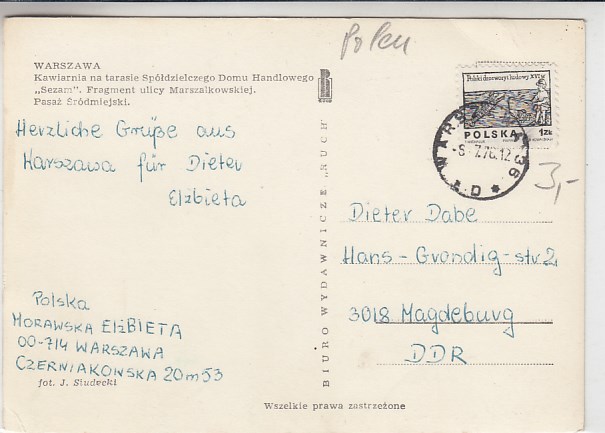 Polen
WARSZAWA
Kawiarnia na tarasie Spółdzielczego Domu Handlowego
„Sezam". Fragment ulicy Marszałkowskiej.
Pasaż Śródmiejski.
Polski drzeworyt ludowy XVI w
POLSKA 1zł
WARSZ 36
-8-7.76.12
* D *
3,-
Herzliche Grüße aus
Warszawa für Dieter
Elżbieta
BIURO WYDAWNICZE „RUCH"
Dieter Dabe
Hans-Grondig-str 2
3018 Magdeburg
DDR
Polska
MORAWSKA ElżBIETA
00-714 WARSZAWA
CZERNIAKOWSKA 20m53
fot. J. Siudecki
Wszelkie prawa zastrzeżone